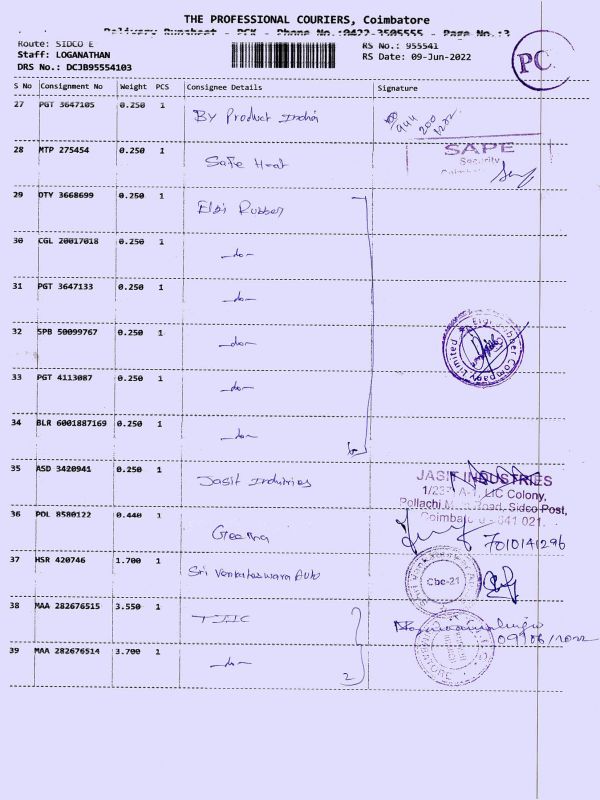 THE PROFESSIONAL COURIERS, Coimbatore
Delivery Runsheet - PCK - Phone No.:0422-3505555 - Page No.:3
Route: SIDCO E
Staff: LOGANATHAN
DRS No.: DCJB95554103
RS No.: 955541
RS Date: 09-Jun-2022
PC
S No Consignment No Weight PCS Consignee Details Signature
27 PGT 3647105 0.250 1 By Product India
944 200
28 MTP 275454 0.250 1 Safe Heat
SAPE
Security
29 DTY 3668699 0.250 1 Elgi Rubber
30 CGL 20017018 0.250 1 -do-
31 PGT 3647133 0.250 1 -do-
32 SPB 50099767 0.250 1 -do-
Elgi Rubber Company Limited
33 PGT 4113087 0.250 1 -do-
34 BLR 6001887169 0.250 1 -do-
6
35 ASD 3420941 0.250 1 Jasit Industries
JASIT INDUSTRIES
LIC Colony,
Pollachi Main Road, Sidco Post,
Coimbatore - 641 021.
36 POL 8580122 0.440 1 Geetha
7010141296
37 HSR 420746 1.700 1 Sri Venkateswara Auto
Cbe-21
38 MAA 282676515 3.550 1 TIIC
09/06/2022
39 MAA 282676514 3.700 1 -do-
2